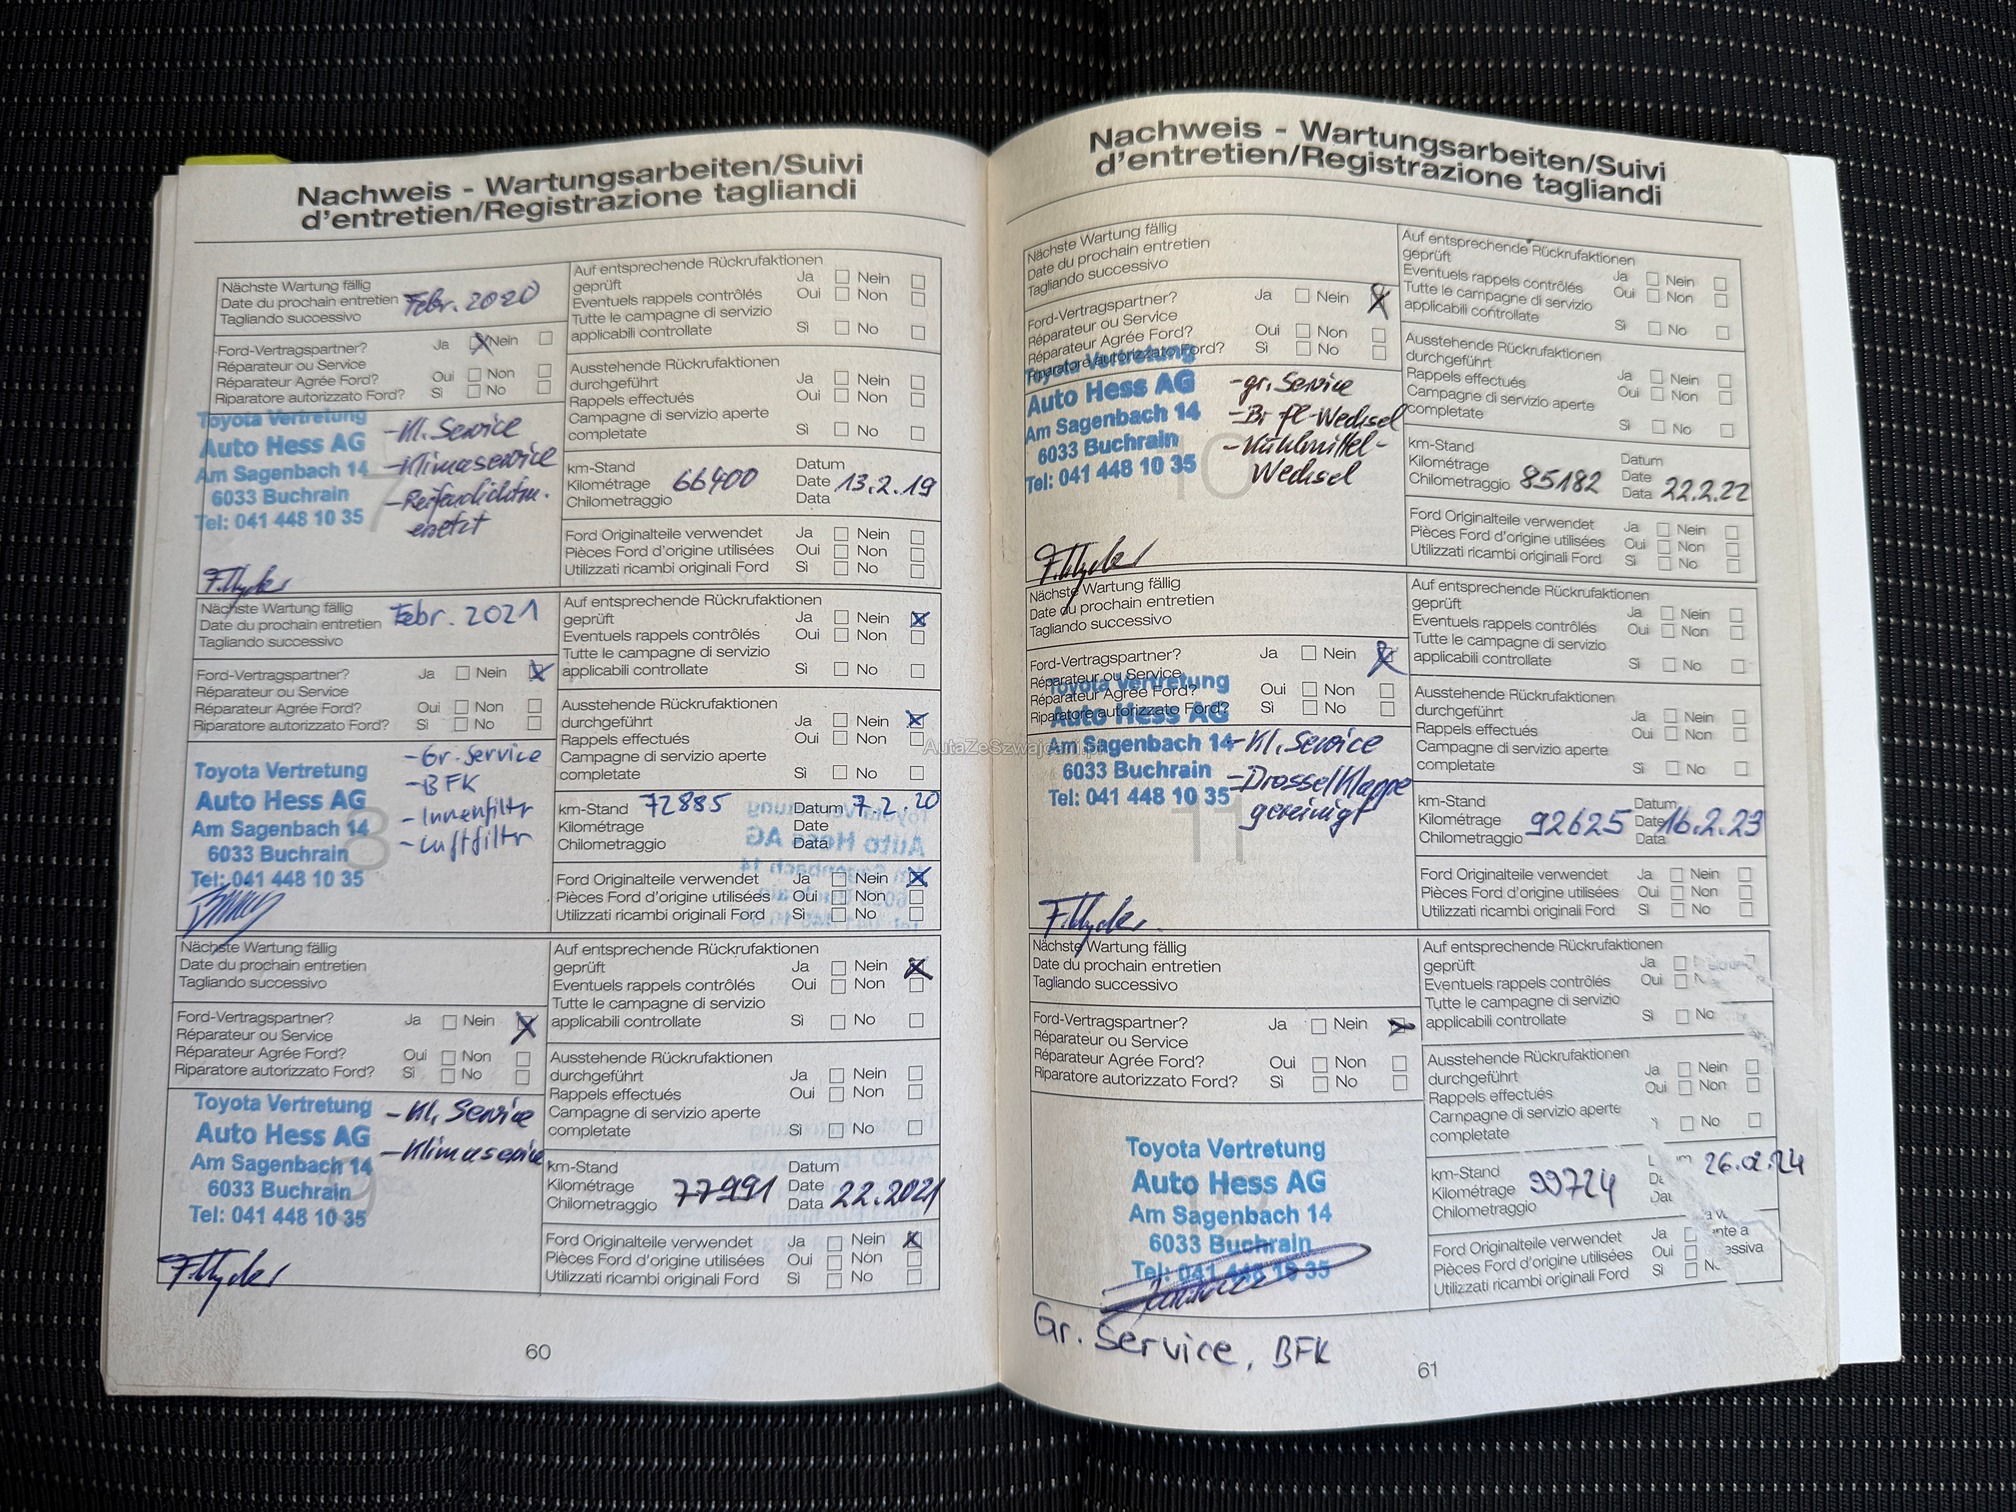 Nachweis - Wartungsarbeiten/Suivi
d'entretien/Registrazione tagliandi
Nächste Wartung fällig
Date du prochain entretien Febr. 2020
Tagliando successivo
Ford-Vertragspartner? Ja Nein
Réparateur ou Service
Réparateur Agréé Ford? Oui Non
Riparatore autorizzato Ford? Sì No
Toyota Vertretung
Auto Hess AG
Am Sagenbach 14
6033 Buchrain
Tel: 041 448 10 35
7
-Kl. Service
-Klimaservice
-Reifendichtm.
ersetzt
Auf entsprechende Rückrufaktionen
geprüft Ja Nein
Eventuels rappels contrôlés Oui Non
Tutte le campagne di servizio
applicabili controllate Sì No
Ausstehende Rückrufaktionen
durchgeführt Ja Nein
Rappels effectués Oui Non
Campagne di servizio aperte
completate Sì No
km-Stand Datum
Kilométrage 66400 Date 13.2.19
Chilometraggio Data
Ford Originalteile verwendet Ja Nein
Pièces Ford d'origine utilisées Oui Non
Utilizzati ricambi originali Ford Sì No
Nächste Wartung fällig
Date du prochain entretien Febr. 2021
Tagliando successivo
Ford-Vertragspartner? Ja Nein
Réparateur ou Service
Réparateur Agréé Ford? Oui Non
Riparatore autorizzato Ford? Sì No
Toyota Vertretung
Auto Hess AG
Am Sagenbach 14
6033 Buchrain
Tel: 041 448 10 35
8
-Gr. Service
-BFK
-Innenfiltr
-Luftfiltr
Auf entsprechende Rückrufaktionen
geprüft Ja Nein
Eventuels rappels contrôlés Oui Non
Tutte le campagne di servizio
applicabili controllate Sì No
Ausstehende Rückrufaktionen
durchgeführt Ja Nein
Rappels effectués Oui Non
Campagne di servizio aperte
completate Sì No
km-Stand 72885 Datum 7.2.20
Kilométrage Date
Chilometraggio Data
Ford Originalteile verwendet Ja Nein
Pièces Ford d'origine utilisées Oui Non
Utilizzati ricambi originali Ford Sì No
Nächste Wartung fällig
Date du prochain entretien
Tagliando successivo
Ford-Vertragspartner? Ja Nein
Réparateur ou Service
Réparateur Agréé Ford? Oui Non
Riparatore autorizzato Ford? Sì No
Toyota Vertretung
Auto Hess AG
Am Sagenbach 14
6033 Buchrain
Tel: 041 448 10 35
9
-Kl. Service
-Klimaservice
Auf entsprechende Rückrufaktionen
geprüft Ja Nein
Eventuels rappels contrôlés Oui Non
Tutte le campagne di servizio
applicabili controllate Sì No
Ausstehende Rückrufaktionen
durchgeführt Ja Nein
Rappels effectués Oui Non
Campagne di servizio aperte
completate Sì No
km-Stand Datum
Kilométrage 77991 Date 22.2021
Chilometraggio Data
Ford Originalteile verwendet Ja Nein
Pièces Ford d'origine utilisées Oui Non
Utilizzati ricambi originali Ford Sì No
60
Nachweis - Wartungsarbeiten/Suivi
d'entretien/Registrazione tagliandi
Nächste Wartung fällig
Date du prochain entretien
Tagliando successivo
Ford-Vertragspartner? Ja Nein
Réparateur ou Service
Réparateur Agréé Ford? Oui Non
Riparatore autorizzato Ford? Sì No
Toyota Vertretung
Auto Hess AG
Am Sagenbach 14
6033 Buchrain
Tel: 041 448 10 35
10
-gr. Service
-Br fl-Wechsel
-Kühlmittel-
Wechsel
Auf entsprechende Rückrufaktionen
geprüft Ja Nein
Eventuels rappels contrôlés Oui Non
Tutte le campagne di servizio
applicabili controllate Sì No
Ausstehende Rückrufaktionen
durchgeführt Ja Nein
Rappels effectués Oui Non
Campagne di servizio aperte
completate Sì No
km-Stand Datum
Kilométrage Date
Chilometraggio 85182 Data 22.2.22
Ford Originalteile verwendet Ja Nein
Pièces Ford d'origine utilisées Oui Non
Utilizzati ricambi originali Ford Sì No
Nächste Wartung fällig
Date du prochain entretien
Tagliando successivo
Ford-Vertragspartner? Ja Nein
Réparateur ou Service
Réparateur Agréé Ford? Oui Non
Riparatore autorizzato Ford? Sì No
Toyota Vertretung
Auto Hess AG
Am Sagenbach 14
6033 Buchrain
Tel: 041 448 10 35
11
-Kl. Service
-Drosselklappe
gereinigt
Auf entsprechende Rückrufaktionen
geprüft Ja Nein
Eventuels rappels contrôlés Oui Non
Tutte le campagne di servizio
applicabili controllate Sì No
Ausstehende Rückrufaktionen
durchgeführt Ja Nein
Rappels effectués Oui Non
Campagne di servizio aperte
completate Sì No
km-Stand Datum
Kilométrage 92625 Date 16.2.23
Chilometraggio Data
Ford Originalteile verwendet Ja Nein
Pièces Ford d'origine utilisées Oui Non
Utilizzati ricambi originali Ford Sì No
Nächste Wartung fällig
Date du prochain entretien
Tagliando successivo
Ford-Vertragspartner? Ja Nein
Réparateur ou Service
Réparateur Agréé Ford? Oui Non
Riparatore autorizzato Ford? Sì No
Toyota Vertretung
Auto Hess AG
Am Sagenbach 14
6033 Buchrain
Tel: 041 448 10 35
Gr. Service, BFK
Auf entsprechende Rückrufaktionen
geprüft Ja
Eventuels rappels contrôlés Oui
Tutte le campagne di servizio
applicabili controllate Sì No
Ausstehende Rückrufaktionen
durchgeführt Ja Nein
Rappels effectués Oui Non
Campagne di servizio aperte
completate No
km-Stand 26.02.24
Kilométrage 99724
Chilometraggio
Ford Originalteile verwendet Ja
Pièces Ford d'origine utilisées Oui
Utilizzati ricambi originali Ford Sì
61